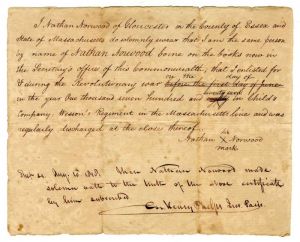 I Nathan Norwood of Gloucester in the County of Essex and
State of Massachusetts do solemnly swear that I am the same person
by name of Nathan Norwood borne on the books now in
the Secretary's office of this Commonwealth, that I enlisted for
& during the Revolutionary war before the first day of June
on the day of
in the year One thousand seven hundred and in Child's
Company, Wesson's Regiment in the Massachusetts line and was
regularly discharged at the close thereof.
his
Nathan X Norwood
mark
Aug. 10. Then Nathan Norwood made
solemn oath to the truth of the above certificate
by him subscribed.
Henry Phelps Jus. Pacis.